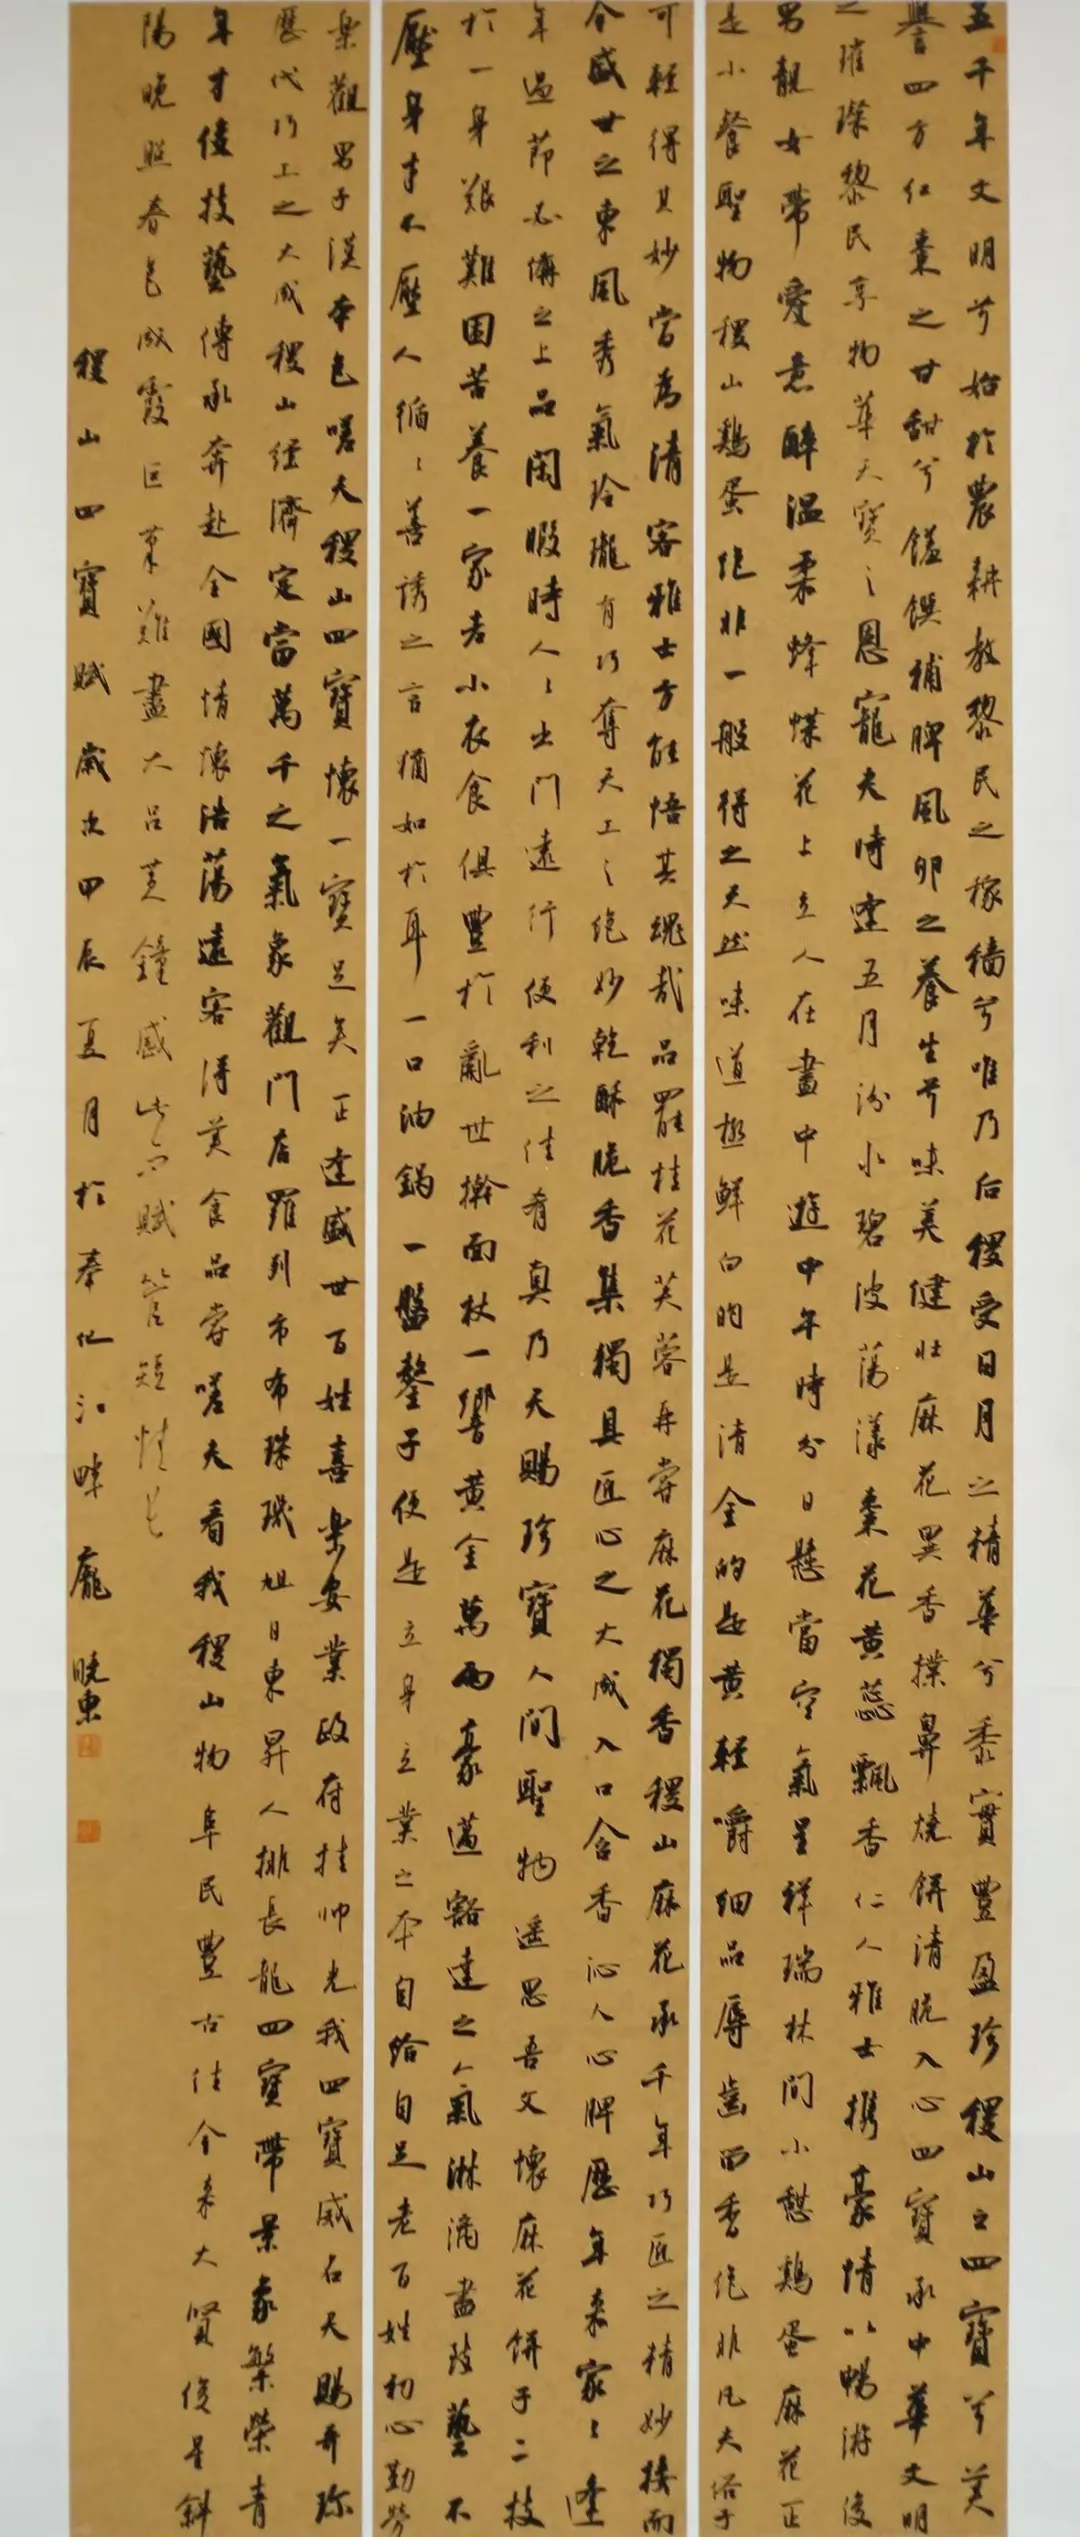 五千年文明兮始於農耕教黎民之稼穡兮唯乃后稷受日月之精華兮黍實豐盈珍稷山之四寶兮美
譽四方紅棗之甘甜兮饈饌補脾風卵之養生兮味美健壯麻花異香撲鼻燒餅清脆入心四寶承中華文明
之璀璨黎民享物華天寶之恩寵夫時逢五月汾水碧波蕩漾棗花黄蕊飄香仁人雅士携豪情以暢游俊
男靚女帶愛意醉温柔蜂蝶花上立人在畫中遊中午時分日懸當空氣呈祥瑞林間小憩鷄蛋麻花正
是小餐聖物稷山鷄蛋绝非一般得之天然味道極鮮白的是清金的是黄輕嚼细品唇齒留香绝非凡夫俗子
可輕得其妙當為清客雅士方能悟其魂哉品罷桂花芙蓉再嘗麻花獨香稷山麻花承千年巧匠之精妙接而
今盛世之東風秀氣玲瓏有巧奪天工之绝妙乾酥脆香集獨具匠心之大成入口含香沁人心脾歷年来家々逢
年過節必備之上品閑暇時人々出門遠行便利之佳肴真乃天賜珍寶人間聖物遥思吾文懷麻花餅子二技
於一身艱難困苦養一家老小衣食俱豐於亂世擀面杖一響黄金萬兩豪邁豁達之氣淋漓盡致藝不
壓身才不壓人循々善誘之言猶如於耳一口油鍋一盤鏊子便是立身立業之本自给自足老百姓初心勤勞
樂觀男子漢本色嗟夫稷山四寶懷一寶足矣正逢盛世百姓喜樂安業政府挂帅先我四寶威名天賜奇珍
歷代巧工之大成稷山经濟定當萬千之氣象觀門店羅列市布珠璣旭日東昇人排長龍四寶帶景象繁榮青
年才佳技藝傳承奔赴全國情懷浩蕩遠客得美食品嘗嗟夫看我稷山物阜民豐古往今来大賢俊星斜
陽晚照春色成霞巨筆難盡大吕黄鐘感此而賦管短情長
稷山四寶賦歲次甲辰夏月於奉化江畔龐曉東